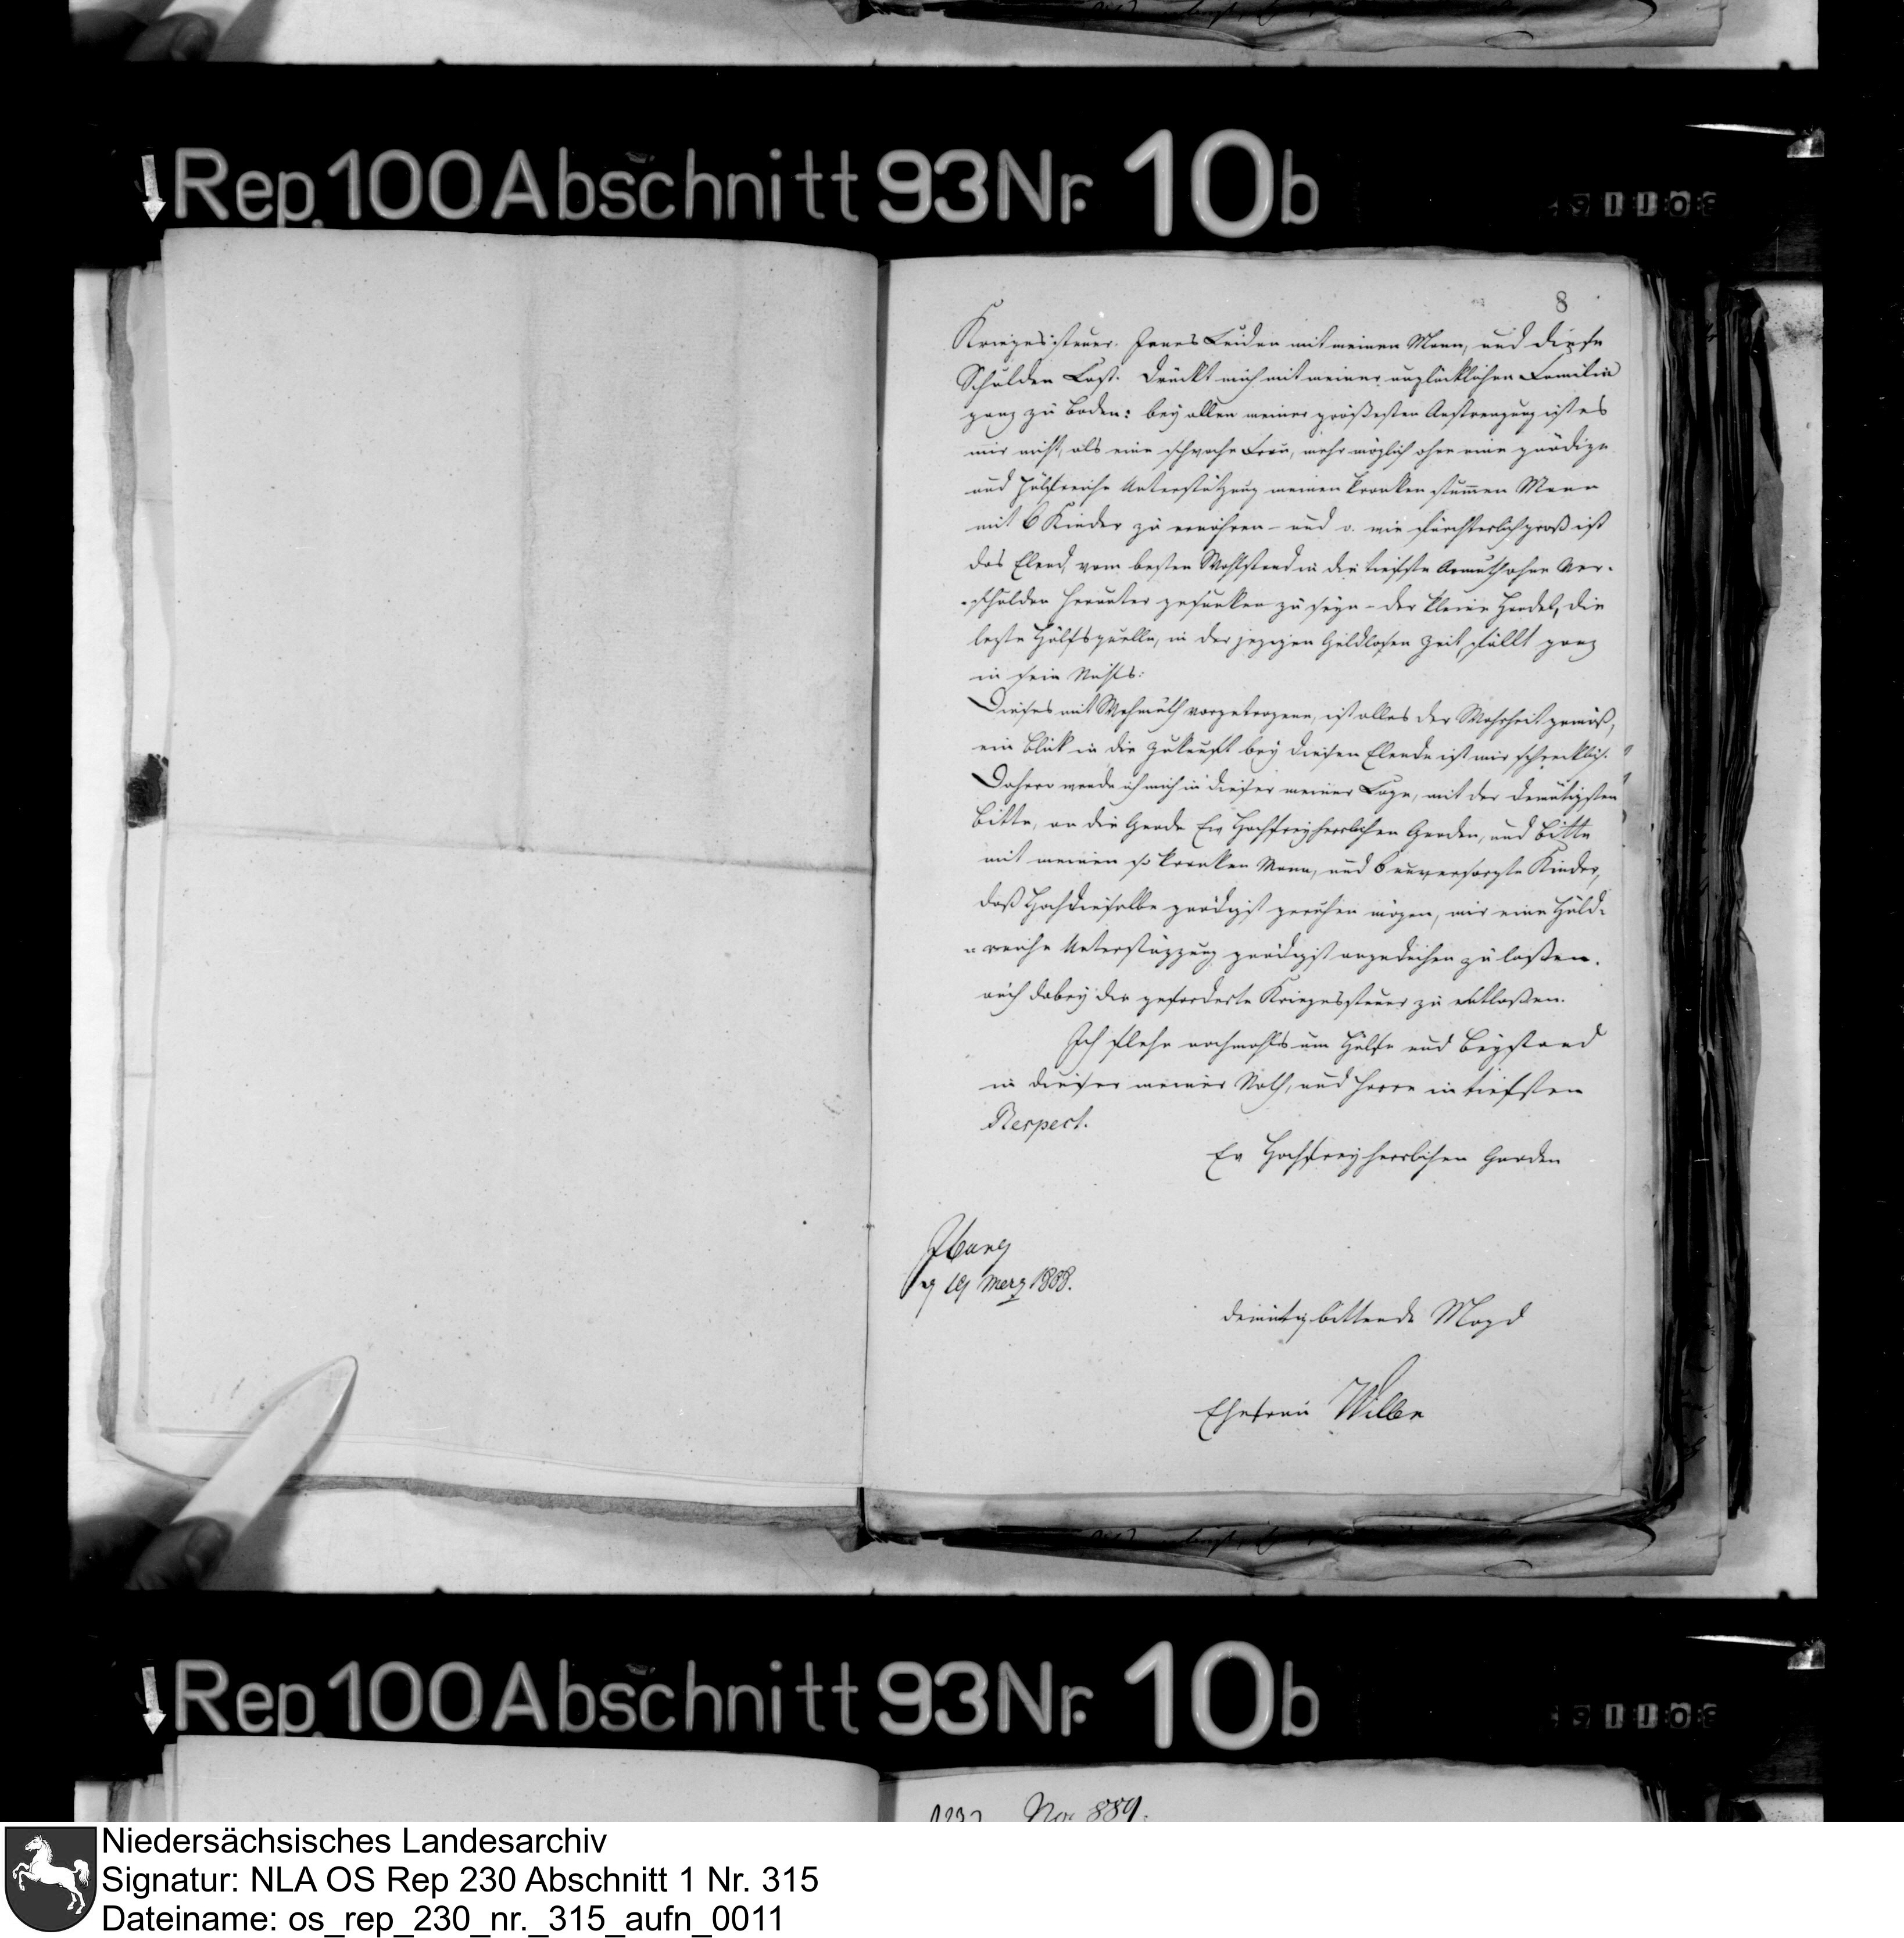 Rep. 100 Abschnitt 93 Nr. 10b
8
Kriegessteuer. Jenes Leiden mit meinen Mann, und diese
Schulden Last. Drückt mich mit meiner unglücklichen Familie
ganz zu Boden: bey allen meiner größesten Anstrengung ist es
mir nicht, als eine schwache Frau, mehr möglich ohne eine gnädige
und hülfreiche Unterstützung meinen kranken stummen Mann
mit 6 Kinder zu ernähren – und o. wie fürchterlich groß ist
das Elend, vom besten Wohlstand in die tiefste Armuth ohne Ver-
-schulden herunter gesunken zu seyn – der kleine Handel, die
lezte Hülfsquelle, in der jezigen Geldlosen Zeit, fällt ganz
in sein Nichts:
Dieses mit Wehmuth vorgetragene, ist alles der Wahrheit gemäß,
ein Blick in die Zukunft bey diesen Elende ist mir schrecklich.
Dahero wende ich mich in dieser meiner Lage, mit der demütigsten
Bitte, an die Gnade Ew Hochfreyherrlichen Gnaden, und bitte
mit meinen so kranken Mann, und 6 unversorgte Kinder,
daß Hochdieselbe gnädigst geruhen mögen, mir eine Huld-
-reiche Unterstüzzung gnädigst angedeihen zu laßen.
auch dabey der geforderte Kriegessteuer zu entlaßen.
Ich flehe nochmahls um Hülfe und Beystand
in dieser meiner Noth, und harre in tiefsten
Respect.
Ew Hochfreyherrlichen Gnaden
Iburg
19 Merz 1808.
demütig bittende Magd
Ehefrau Wilben
Rep. 100 Abschnitt 93 Nr. 10b
No. 889.
Niedersächsisches Landesarchiv
Signatur: NLA OS Rep 230 Abschnitt 1 Nr. 315
Dateiname: os_rep_230_nr._315_aufn_0011